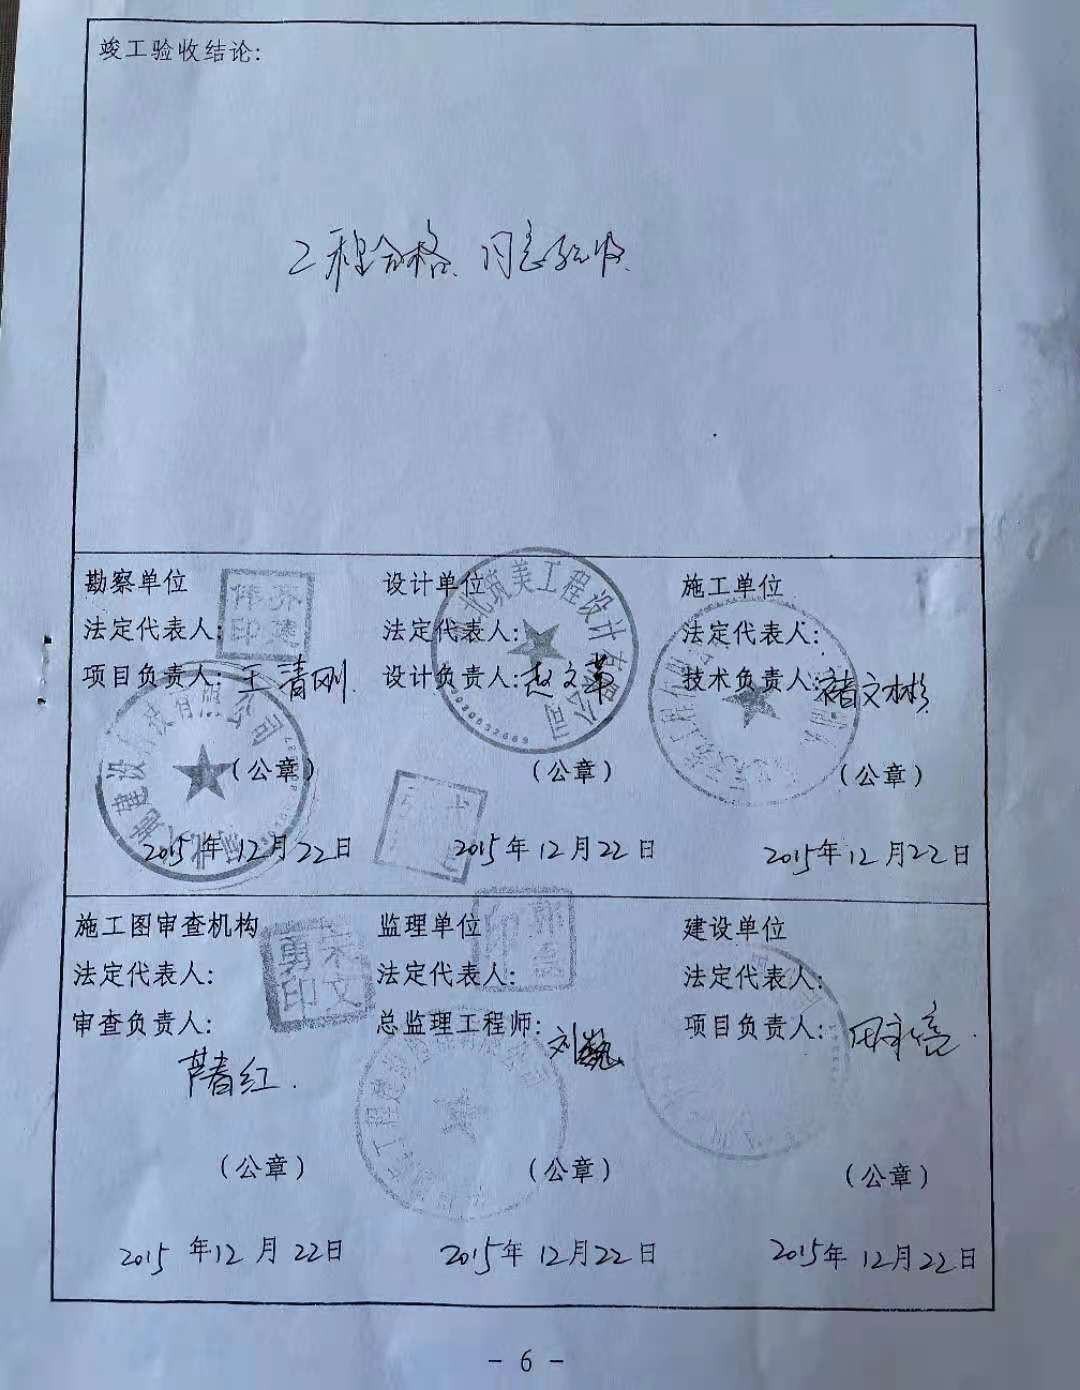 竣工验收结论:
工程合格、同意验收
勘察单位
法定代表人:
项目负责人: 王清刚
(公章)
2015年12月22日
设计单位
法定代表人:
设计负责人: 赵文革
筑美工程设计有限公司
(公章)
2015年12月22日
施工单位
法定代表人:
技术负责人: 褚文彬
(公章)
2015年12月22日
施工图审查机构
法定代表人:
宋文勇印
审查负责人:
(公章)
2015年12月22日
监理单位
法定代表人:
总监理工程师: 刘巍
(公章)
2015年12月22日
建设单位
法定代表人:
项目负责人:
(公章)
2015年12月22日
- 6 -